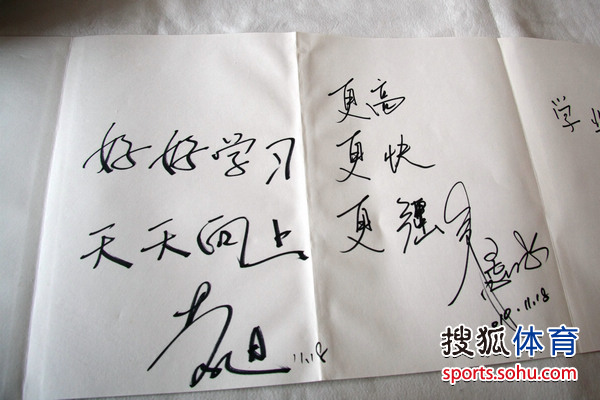 好好学习
天天向上
11.18
更高
更快
更强
11.18
学业
搜狐体育
sports.sohu.com